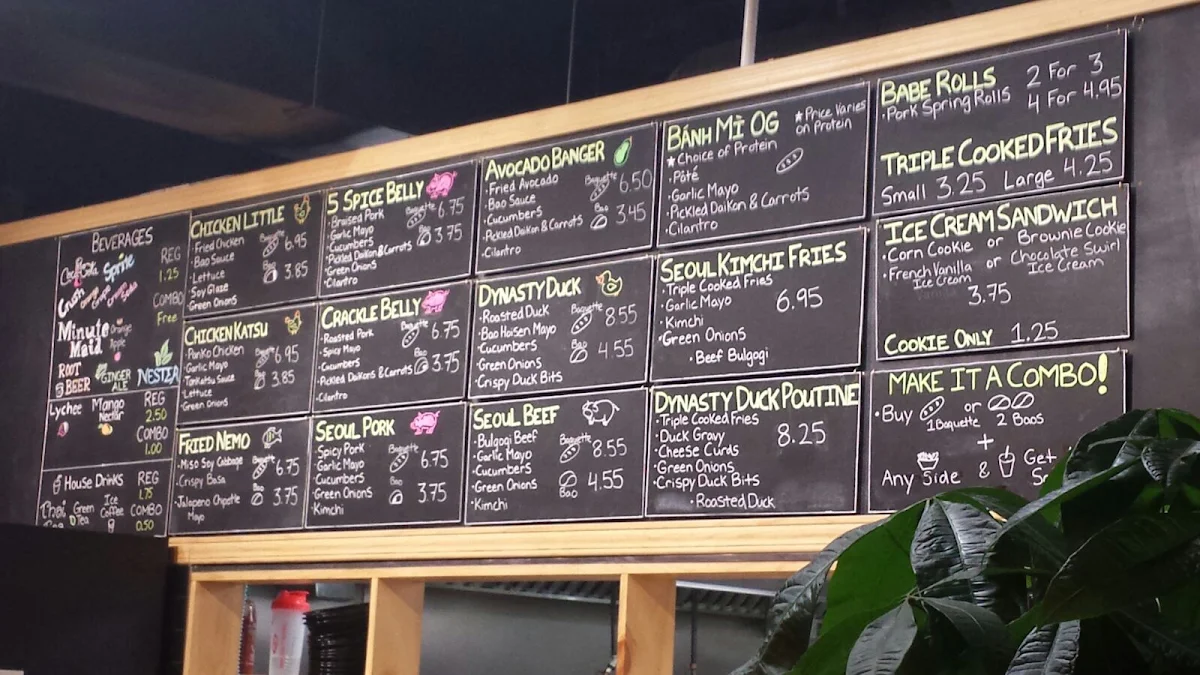 BEVERAGES
Coca-Cola Sprite
REG
1.25
Crush
Orange Grape Cream Soda
COMBO
Free
Minute Maid
Orange
Apple
ROOT BEER
GINGER ALE
NESTEA
Lychee
Mango Nectar
REG
2.50
COMBO
1.00
House Drinks
REG
1.75
Thai Tea
Green Tea
Ice Coffee
COMBO
0.50
CHICKEN LITTLE
•Fried Chicken
•Bao Sauce
•Lettuce
•Soy Glaze
•Green Onions
Baguette 6.95
Bao 3.85
CHICKEN KATSU
•Panko Chicken
•Garlic Mayo
•Tonkatsu Sauce
•Lettuce
•Green Onions
Baguette 6.95
Bao 3.85
FRIED NEMO
•Miso Soy Cabbage
•Crispy Basa
•Jalapeno Chipotle
Mayo
Baguette 6.75
Bao 3.75
5 SPICE BELLY
•Braised Pork
•Garlic Mayo
•Cucumbers
•Pickled Daikon & Carrots
•Green Onions
•Cilantro
Baguette 6.75
Bao 3.75
CRACKLE BELLY
•Roasted Pork
•Spicy Mayo
•Cucumbers
•Pickled Daikons & Carrots
•Cilantro
Baguette 6.75
Bao 3.75
SEOUL PORK
•Spicy Pork
•Garlic Mayo
•Cucumbers
•Green Onions
•Kimchi
Baguette 6.75
Bao 3.75
AVOCADO BANGER
•Fried Avocado
•Bao Sauce
•Cucumbers
•Pickled Daikon & Carrots
•Cilantro
Baguette 6.50
Bao 3.45
DYNASTY DUCK
•Roasted Duck
•Bao Hoisen Mayo
•Cucumbers
•Green Onions
•Crispy Duck Bits
Baguette 8.55
Bao 4.55
SEOUL BEEF
•Bulgogi Beef
•Garlic Mayo
•Cucumbers
•Green Onions
•Kimchi
Baguette 8.55
Bao 4.55
BÁNH MÌ OG
★Price Varies
on Protein
★Choice of Protein
•Pâté
•Garlic Mayo
•Pickled Daikon & Carrots
•Cilantro
SEOUL KIMCHI FRIES
•Triple Cooked Fries
•Garlic Mayo
•Kimchi
•Green Onions
•Beef Bulgogi
6.95
DYNASTY DUCK POUTINE
•Triple Cooked Fries
•Duck Gravy
•Cheese Curds
•Green Onions
•Crispy Duck Bits
•Roasted Duck
8.25
BABE ROLLS
•Pork Spring Rolls
2 For 3
4 For 4.95
TRIPLE COOKED FRIES
Small 3.25 Large 4.25
ICE CREAM SANDWICH
•Corn Cookie or Brownie Cookie
•French Vanilla Ice Cream or Chocolate Swirl Ice Cream
3.75
COOKIE ONLY 1.25
MAKE IT A COMBO!
•Buy or
1 Baguette 2 Baos
+
Any Side & Get